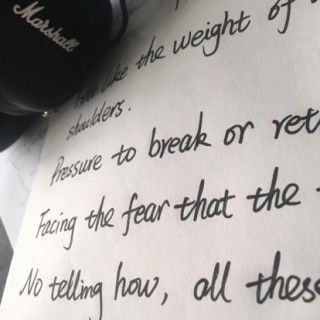 Marshall
like the weight of
shoulders.
Pressure to break or ret
Facing the fear that the
No telling how, all these